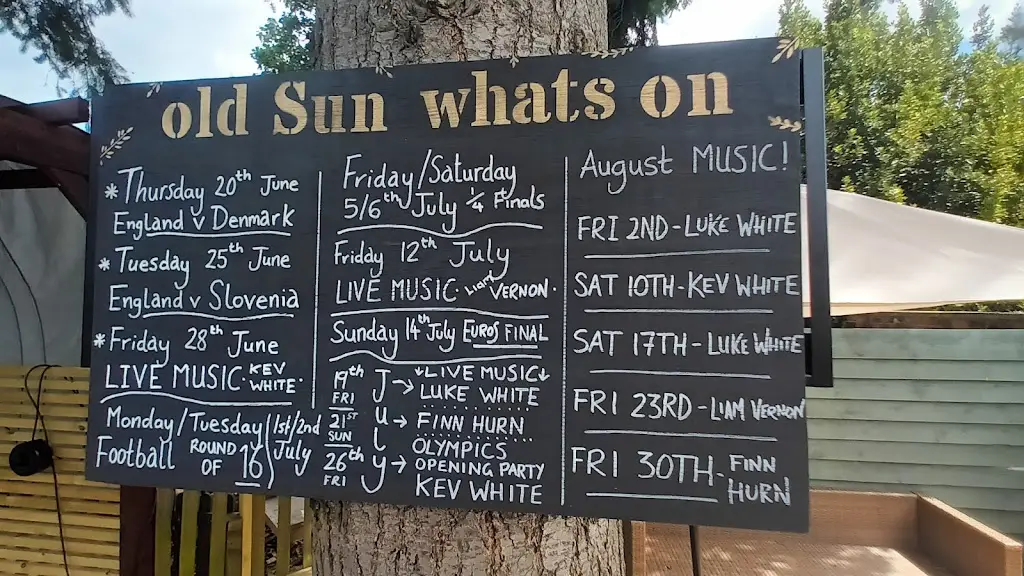 old Sun whats on
*Thursday 20th June
England v Denmark
*Tuesday 25th June
England v Slovenia
*Friday 28th June
LIVE MUSIC · KEV WHITE ·
Monday/Tuesday 1st/2nd July
Football ROUND OF 16
Friday/Saturday
5/6th July 1/4 Finals
Friday 12th July
LIVE MUSIC · Liam VERNON ·
Sunday 14th July EUROS FINAL
JULY
LIVE MUSIC
19th FRI → LUKE WHITE
21ST SUN → FINN HURN
26th FRI → OLYMPICS
OPENING PARTY
KEV WHITE
August MUSIC!
FRI 2ND - LUKE WHITE
SAT 10TH - KEV WHITE
SAT 17TH - LUKE WHITE
FRI 23RD - LIAM VERNON
FRI 30TH - FINN
HURN